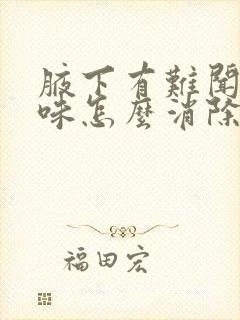 腋下有難聞
味怎麼消除
福田宏